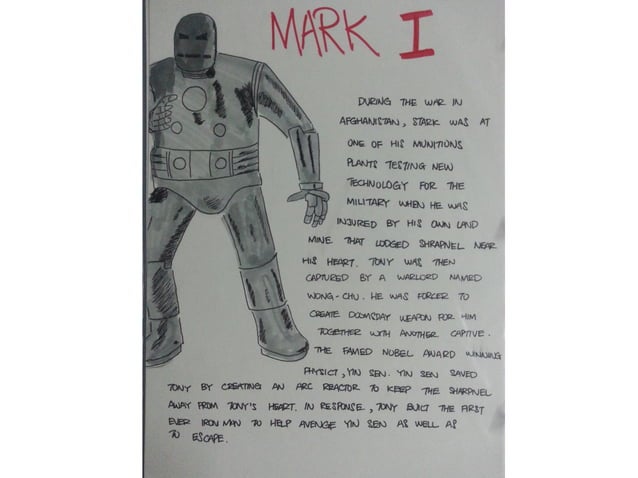 MARK I
DURING THE WAR IN
AFGHANISTAN, STARK WAS AT
ONE OF HIS MUNITIONS
PLANTS TESTING NEW
TECHNOLOGY FOR THE
MILITARY WHEN HE WAS
INJURED BY HIS OWN LAND
MINE THAT LODGED SHRAPNEL NEAR
HIS HEART. TONY WAS THEN
CAPTURED BY A WARLORD NAMED
WONG-CHU. HE WAS FORCER TO
CREATE DOOMSDAY WEAPON FOR HIM
TOGETHER WITH ANOTHER CAPTIVE.
THE FAMED NOBEL AWARD WINNING
PHYSICT, YIN SEN. YIN SEN SAVED
TONY BY CREATING AN ARC REACTOR TO KEEP THE SHARPNEL
AWAY FROM TONY'S HEART. IN RESPONSE, TONY BUILT THE FIRST
EVER IRON MAN TO HELP AVENGE YIN SEN AS WELL AS
TO ESCAPE.